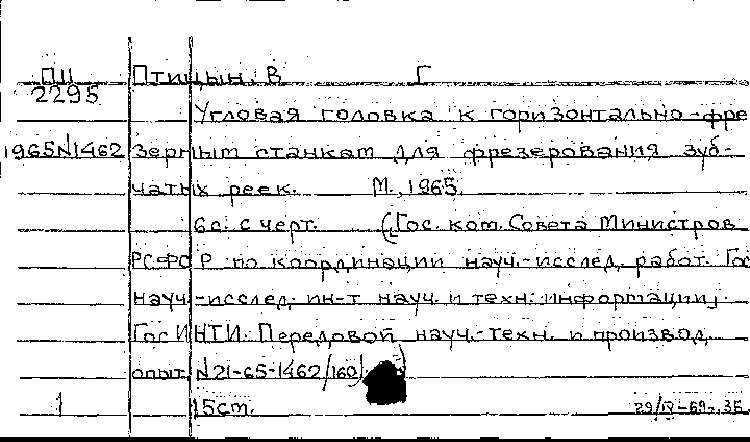 ПИ Птицын, В Г
2295
Угловая головка к горизонтально-фре
1965N1462 зерным станкам для фрезерования зуб-
чатых реек. М., 1965
6с. с черт. (Гос. ком. Совета Министров
РСФСР по координации науч.-исслед. работ. Гос
науч.-исслед. ин-т науч. и техн. информации;
ГосИНТИ. Передовой науч.-техн. и производ.
опыт. N21-65-1462/160)
1 15ст. 29/IV-69г.